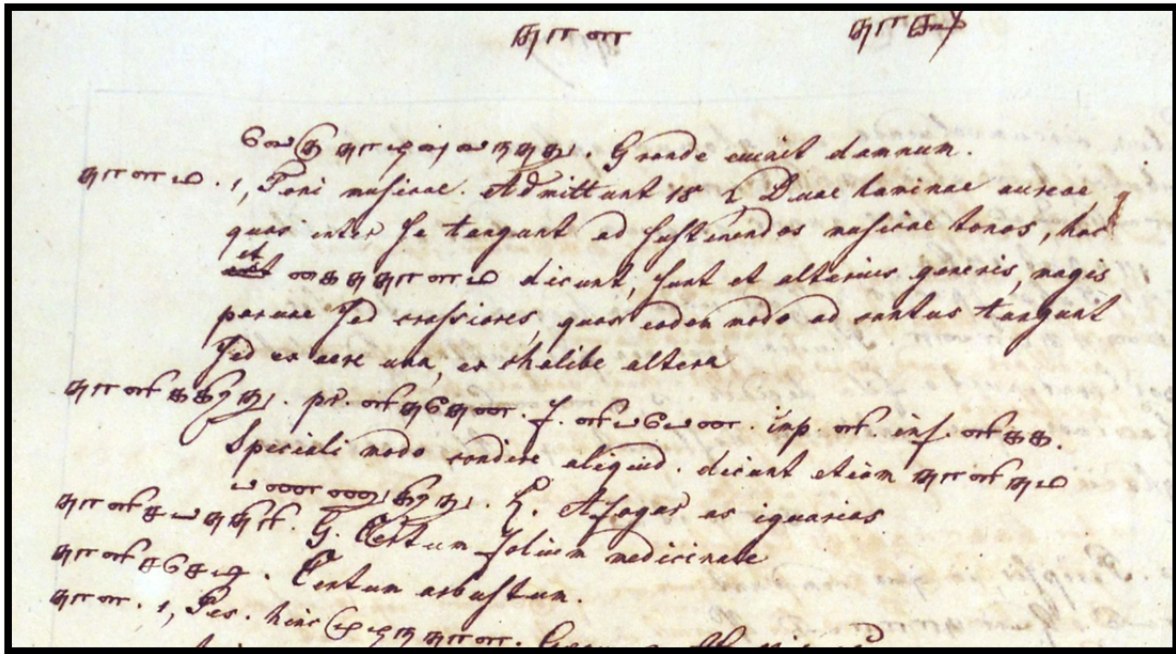 தாள
Grande evenit damnum.
தாளம. 1, Toni musicae. Admittunt 18 2 Duae laminae aureae,
quas inter se tangunt ad sustinendos musicae tonos, has
et கைததாளம dicunt, sunt et alterius generis, magis
parvae sed crassiores, quas eodem modo ad cantus tangunt
sed ex aere una, ex chalibe altera
தாளிககிறது. pr. ளிததேன. f. ளிபபேன. imp. ளி. inf. ளிகக.
Speciali modo condire aliquid. dicunt etiam தாளிதம
பணணுகிறது. L. Afogar as iguarias
தாளிசபததிரி. G. Certum folium medicinale
Certum arbustum.
தாள. 1, Pes. hinc முழநதாள.